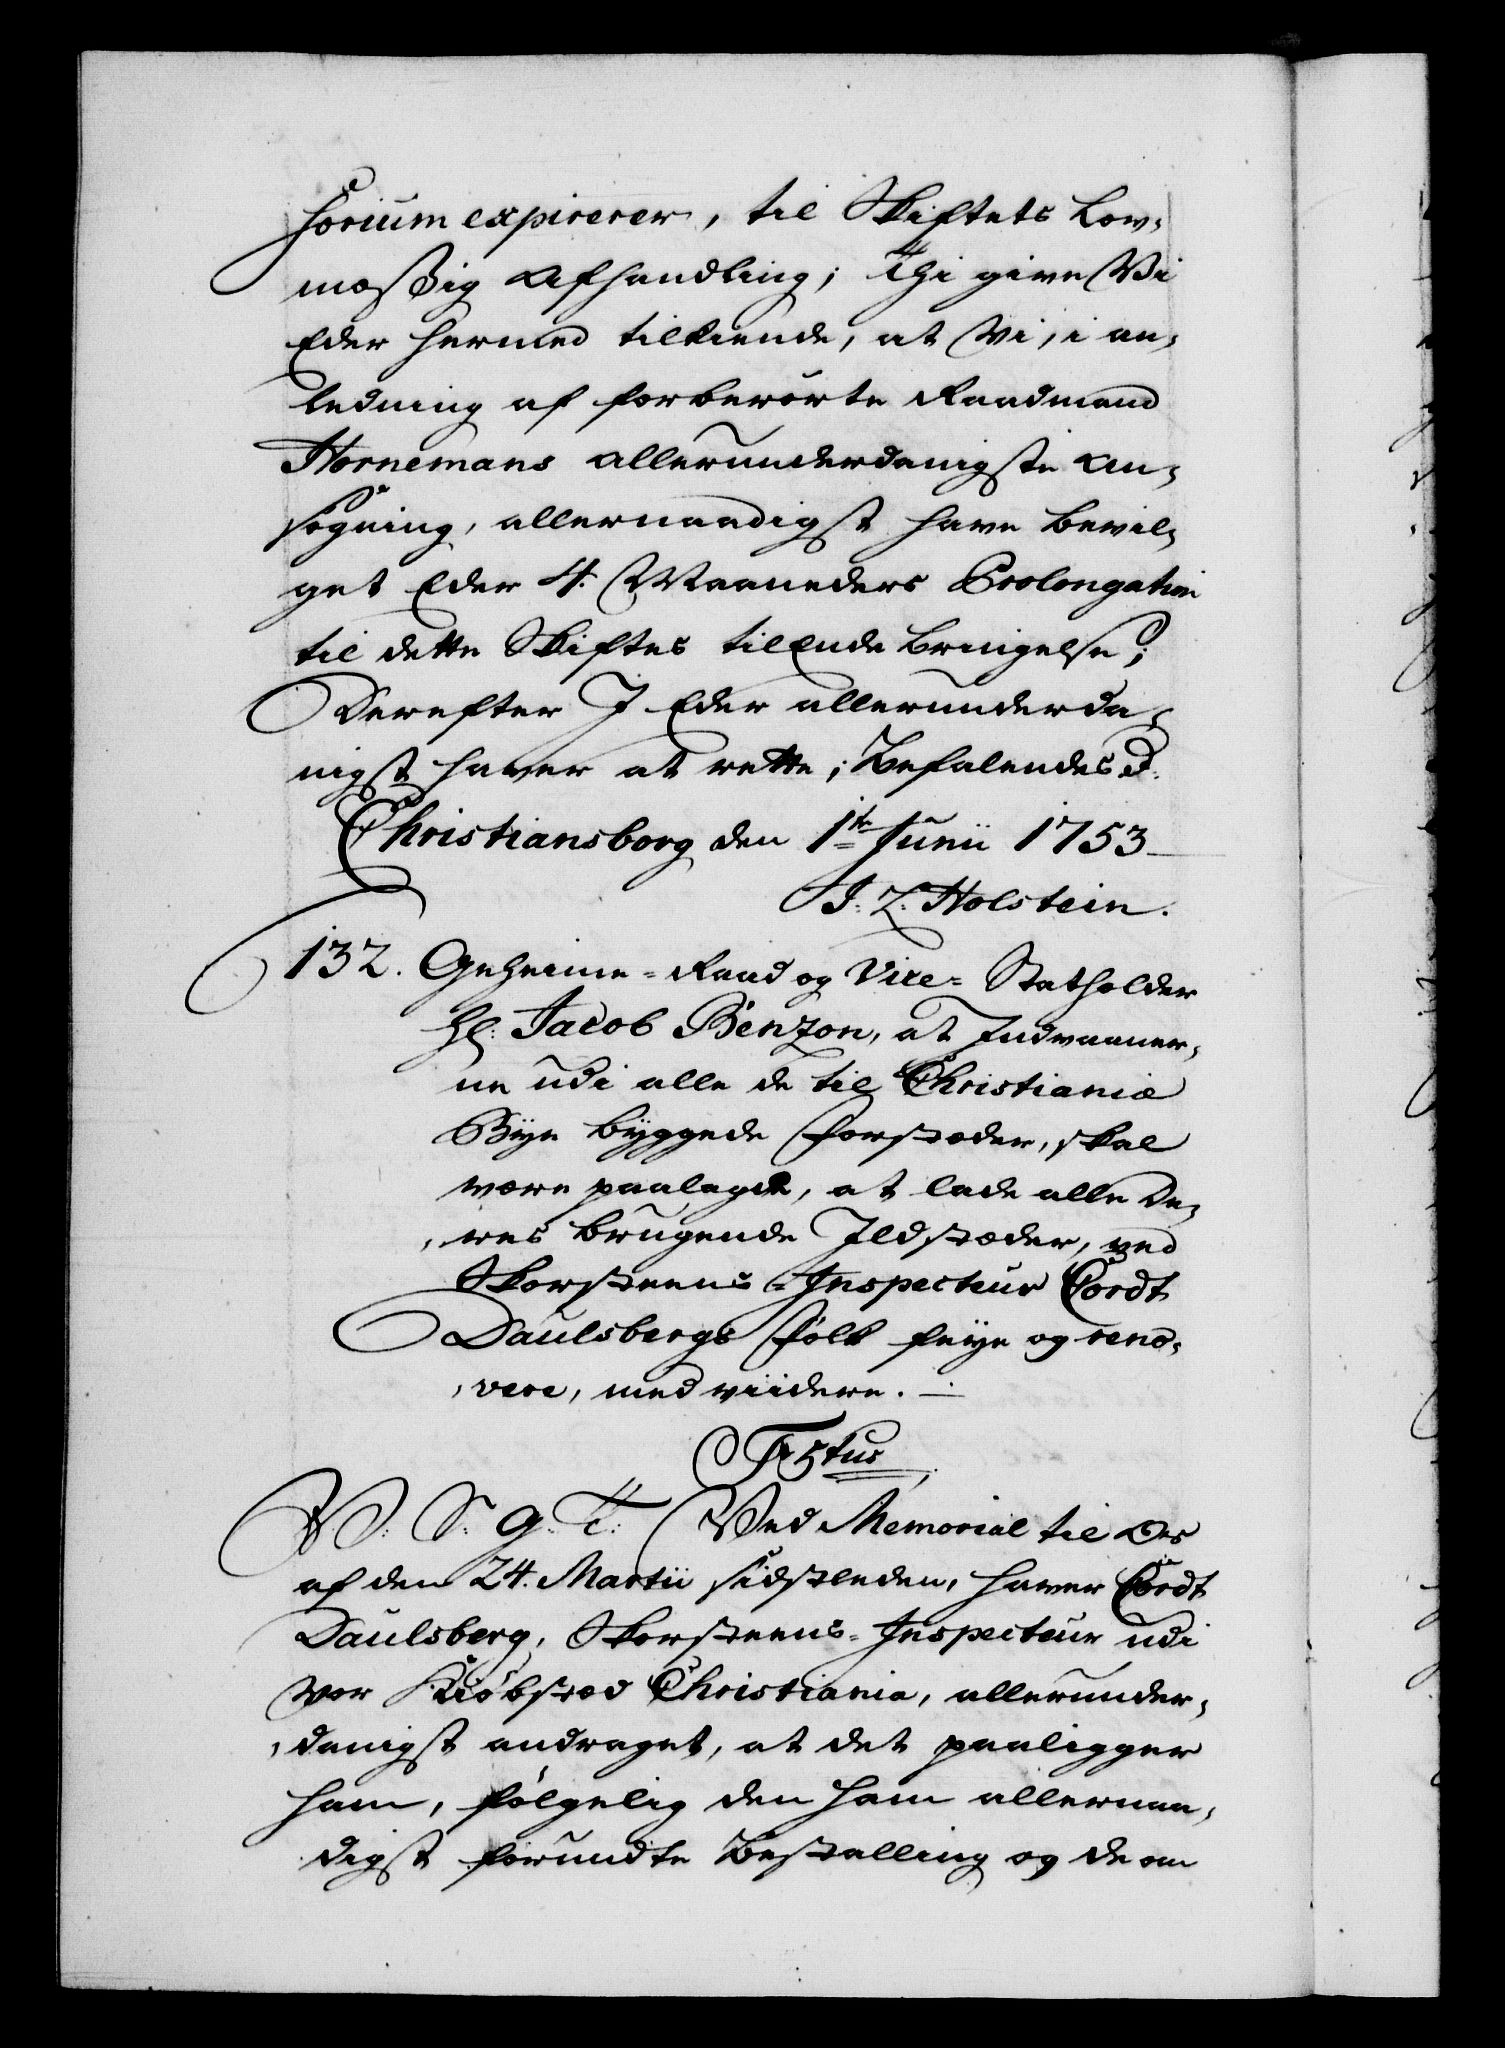 sorium expirerer, til Skiftets Lov-
mæssig Afhandling; Thi give Vi
Eder hermed tilkiende, at Vi, i an-
ledning af forberørte Raadmand
Hornemans allerunderdanigste An-
søgning, allernaadigst have bevil-
get Eder 4. Maaneders Prolongation
til dette Skiftes tilEnde bringelse;
Derefter I Eder allerunderda-
nigst haver at rette; Befalendes d:
Christiansborg den 1te Junii 1753
J: L: Holstein.
132. Geheime-Raad og Vice-Statholder
Hl: Jacob Benzon, at Indvaaner-
ne udi alle de til Christianiæ
Bye byggede Forstæder, skal
være paalagde, at lade alle De-
res brugende Ildstæder, ved
Skorsteens-Inspecteur Cordt
Daulsbergs Folk feye og reno-
vere, med viidere.
F 5tus
V: S: G: T: Ved Memorial til Os
af den 24. Martii sidstleden, haver Cordt
Daulsberg, Skorsteens-Inspecteur udi
Vor Kiøbstæd Christiania, allerunder-
danigst andraget, at det paaligger
ham, følgelig den ham allernaa-
digst forundte Bestalling og de om